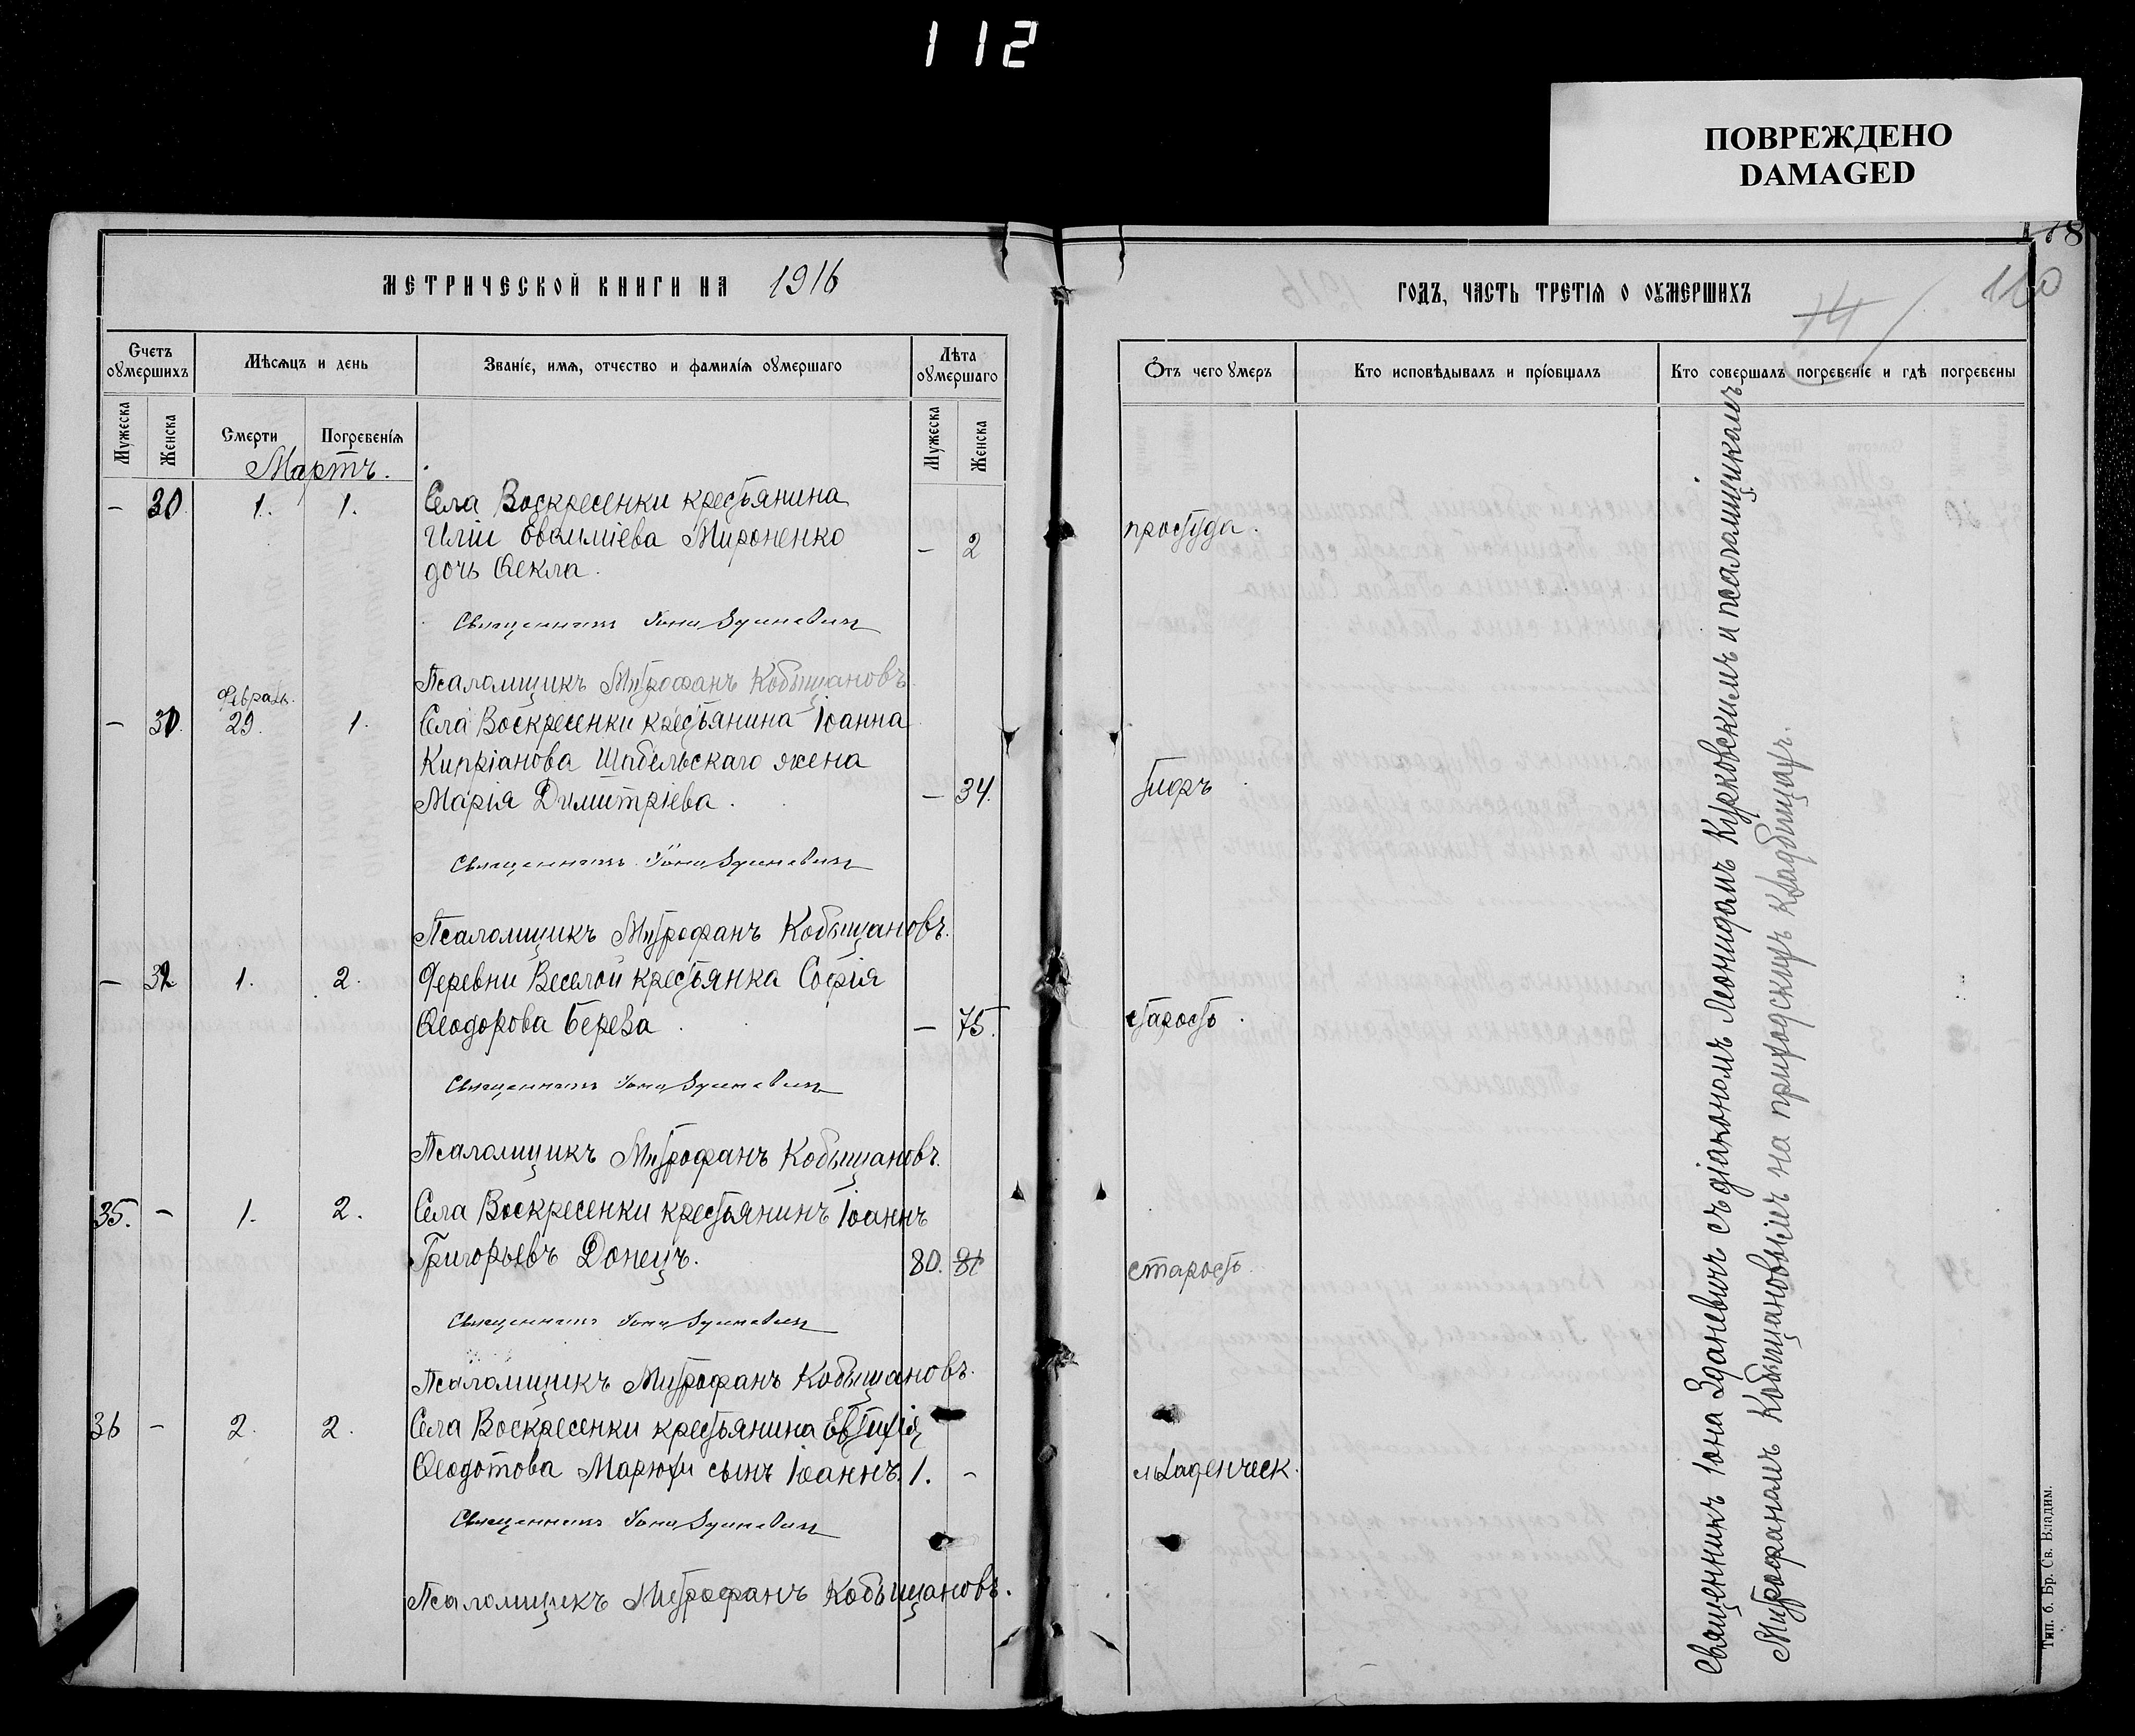 112
ПОВРЕЖДЕНО
DAMAGED
118
МЕТРИЧЕСКОЙ КНИГИ НА 1916
ГОДЪ, ЧАСТЬ ТРЕТІЯ О ОУМЕРШИХЪ
14
110
Счетъ оумершихъ
Мѣсяцъ и день
Званіе, имя, отчество и фамилія оумершаго
Лѣта оумершаго
Отъ чего умеръ
Кто исповѣдывалъ и пріобщалъ
Кто совершалъ погребеніе и гдѣ погребены
Мужеска
Женска
Смерти
Погребенія
Мужеска
Женска
Мартъ.
– 30 1. 1. Села Воскресенки крестьянина
Иліи Евѳиміева Мироненко – 2 простуда.
дочь Ѳекла.
Священникъ Іона Зданевичъ
Псаломщикъ Митрофанъ Кобыщановъ
Февраль.
– 31. 29. 1. Села Воскресенки крестьянина Іоанна
Кипріанова Шабельскаго жена
Марія Димитріева. – 34. тифъ
Священникъ Іона Зданевичъ
Псаломщикъ Митрофанъ Кобыщановъ.
– 32 1. 2. Деревни Веселой крестьянка Софія
Ѳеодорова Береза – 75. старость.
Священникъ Іона Зданевичъ
Псаломщикъ Митрофанъ Кобыщановъ.
35. – 1. 2. Села Воскресенки крестьянинъ Іоаннъ
Григорьевъ Донецъ. 80. 81 старость.
Священникъ Іона Зданевичъ
Псаломщикъ Митрофанъ Кобыщановъ.
36 – 2. 2. Села Воскресенки крестьянина Евтихія
Ѳеодотова Марюхи сынъ Іоаннъ. 1. – младенческ.
Священникъ Іона Зданевичъ
Псаломщикъ Митрофанъ Кобыщановъ.
Священникъ Іона Зданевичъ съ діакономъ Леонидомъ Курковскимъ и псаломщикомъ
Митрофаномъ Кобыщановымъ на приходскихъ кладбищахъ.
Тип. б. Бр. Св. Владим.